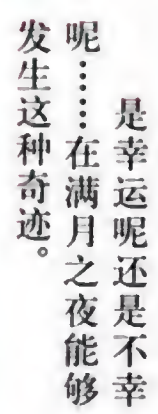 是幸运呢还是不幸
呢……在满月之夜能够
发生这种奇迹。